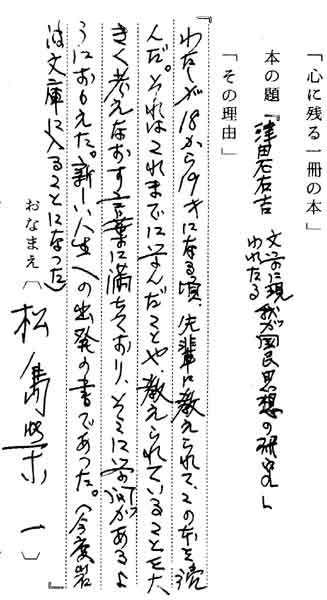 「心に残る一冊の本」
本の題『津田左右吉 文学に現われたる我が国民思想の研究』
「その理由」
『わたしが18から19才になる頃、先輩に教えられて、この本を読
んだ。それはこれまでに学んだことや、教えられていることを大
きく考えなおす言葉に満ちており、そこに学問があるよ
うにおもえた。新しい人生への出発の書であった。（今度岩
波文庫に入ることになった）』
おなまえ〔松島栄一〕